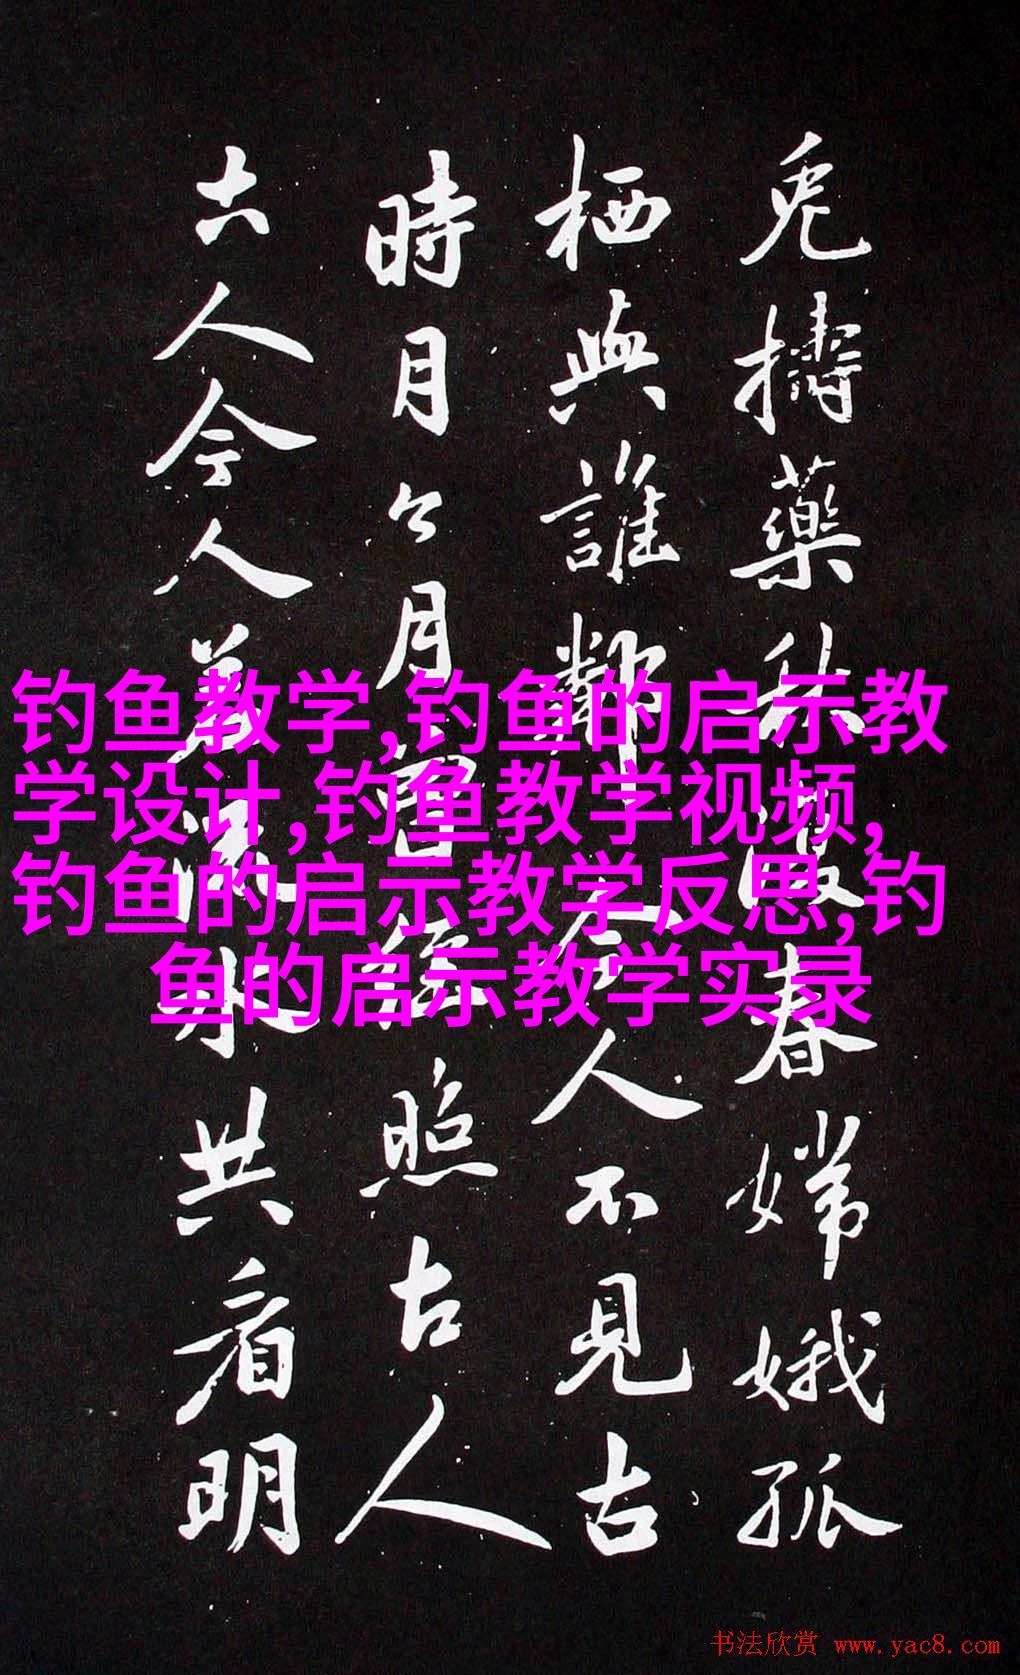 兎擣藥秋復春嫦娥孤
栖與誰鄰今人不見古
時月今月曾經照古人
古人今人若流水共看明
钓鱼教学,钓鱼的启示教
学设计,钓鱼教学视频,
钓鱼的启示教学反思,钓
鱼的启示教学实录
书法欣赏 www.yac8.com